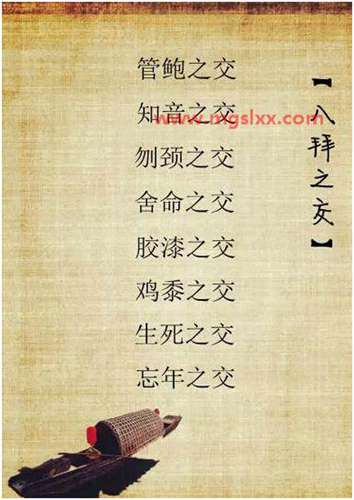 【八拜之交】
管鲍之交
知音之交
刎颈之交
舍命之交
胶漆之交
鸡黍之交
生死之交
忘年之交
www.mgslxx.com